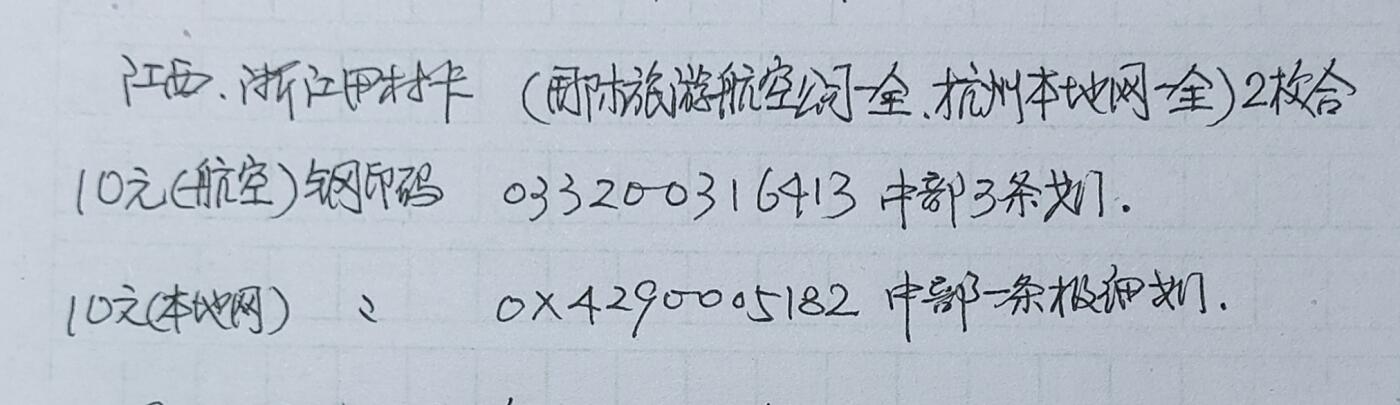 江西、浙江田村卡 (南昌旅游航空公司一全、杭州本地网一全)2枚合
10元(航空)钢印码 033200316413 中部3条划.
10元(本地网) 〃 0X4290005182 中部一条极细划.